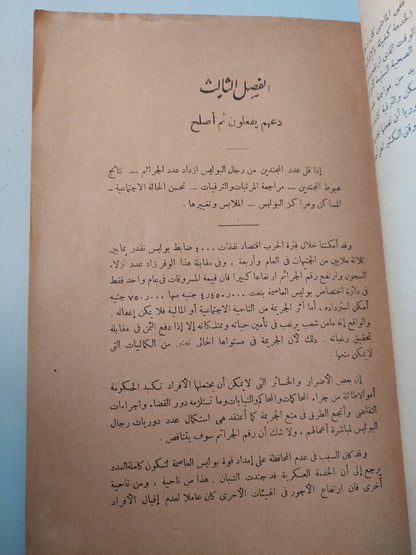 الفصل الثالث
دعهم يفعلون ثم أصلح
إذا قل عدد المجندين من رجال البوليس ازداد عدد الجرائم — نتائج
هبوط المجندين — مراجعة المرتبات والترقيات — تحسن الحالة الاجتماعية —
المساكن ومراكز البوليس — الملابس وتغييرها .
وقد أمكننا خلال فترة الحرب اقتصاد نفقات ٤٠٠٠ ضابط بوليس تقدر بما بين
ثلاثة ملايين من الجنيهات فى العام وأربعة ، وفى مقابلة هذا الوفر زاد عدد نزلاء
السجون وارتفع رقم الجرائم ارتفاعا كبيرا فان قيمة المسروقات فى عام واحد فقط
فى دائرة اختصاص بوليس العاصمة بلغت ٤٫٤٥٠٫٠٠٠ جنيه منها ٧٥٠٫٠٠٠ جنيه
أمكن استردادها ، أما أثر الجريمة من الناحية الاجتماعية أو المالية فلا يمكن إغفاله .
والواقع إنه مامن شعب يرغب فى تأمين حياته وممتلكاته إلا إذا دفع الثمن فى مقابلة
تحقيق رغباته . ذلك لأن الجريمة فى مستواها الحالى تعتبر من الكماليات التى
لايمكن منعها .
إن بعض الأضرار والخسائر التى لايمكن أن يحتملها الأفراد تكبد الحكومة
أموالا طائلة من جراء المحاكمات والمحاكم والنيابات وما تستلزمه دور القضاء وإجراءات
التقاضى وأنجع الطرق فى منع الجريمة كما أعتقد هى استكمال عدد دوريات رجال
البوليس لمباشرة أعمالهم ، ولا شك أن رقم الجرائم سوف يتناقص .
وقد كان السبب فى عدم المحافظة على إمداد قوة بوليس العاصمة لتكون كاملة العدد
يرجع إلى أن الخدمة العسكرية قد جندت الشبان . هذا من ناحية . ومن ناحية
أخرى فان ارتفاع الأجور فى الهيئات الأخرى كان عاملا لعدم إقبال الأفراد